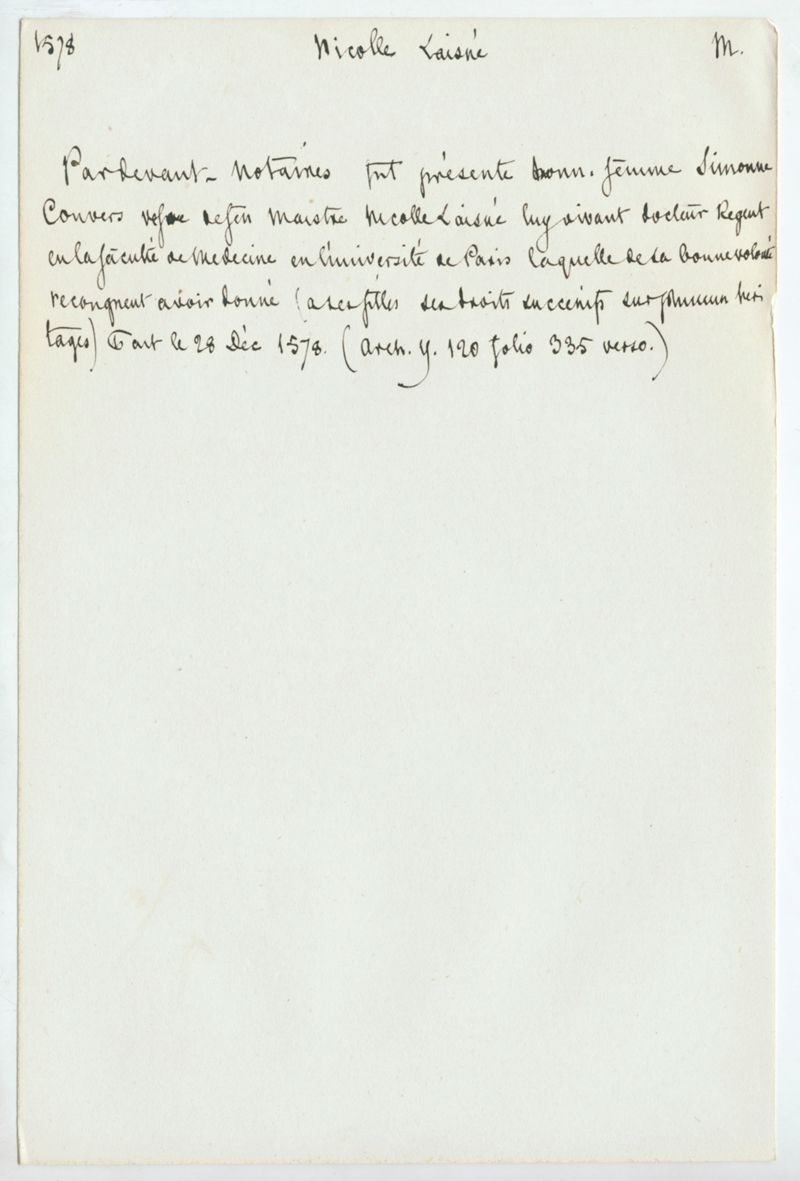 1578 Nicolle Laisné M.
Pardevant_ Notaires fut présente honn. femme Simonne
Convers vefve de feu Maistre Nicolle Laisné luy vivant docteur Regent
en la faculté de Medecine en l'université de Paris laquelle de sa bonne volonté
recongneut avoir donné (a ses filles ses droits successifs sur plusieurs heri
tages) Fait le 28 Déc 1578. (Arch. Y. 120 folio 335 verso.)